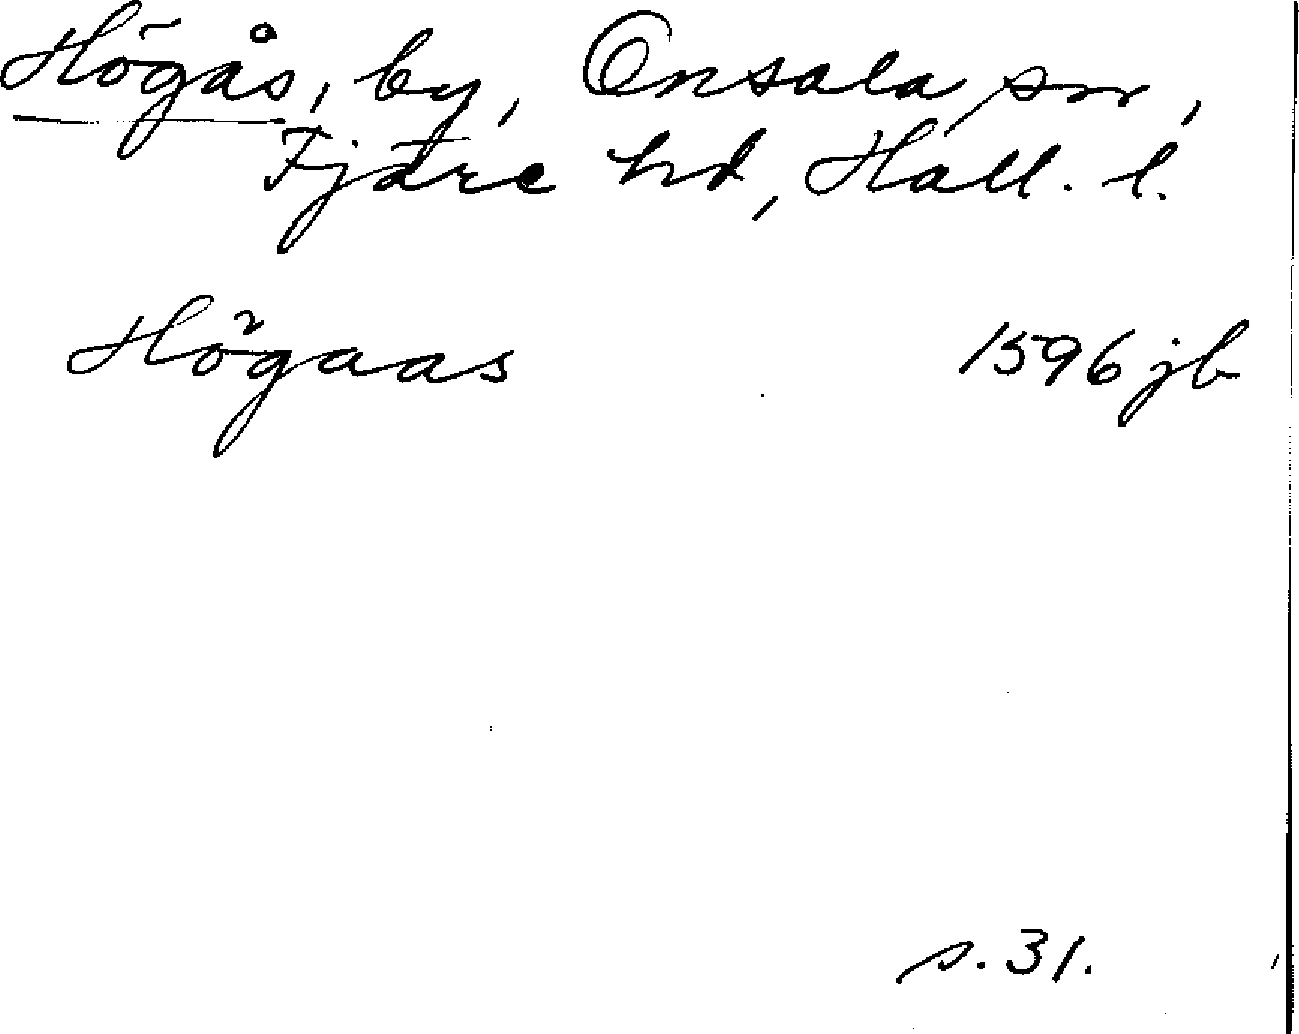 Högås, by, Onsala sn,
Fjäre hd, Hall. l.
Högaas 1596 jb
s. 31.